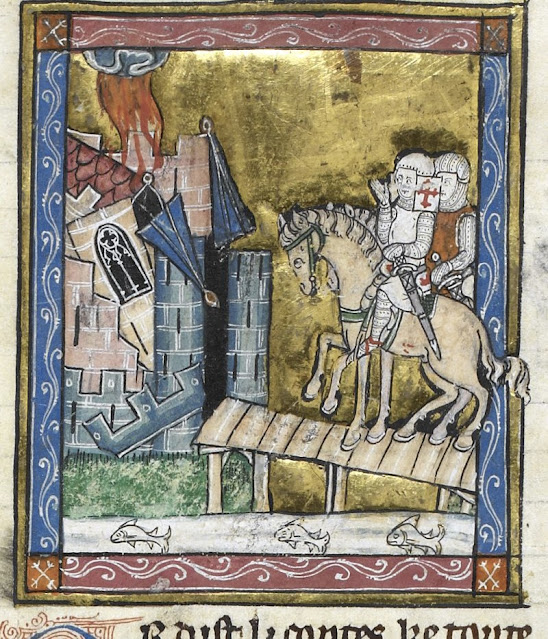 R dist li contes ke toute